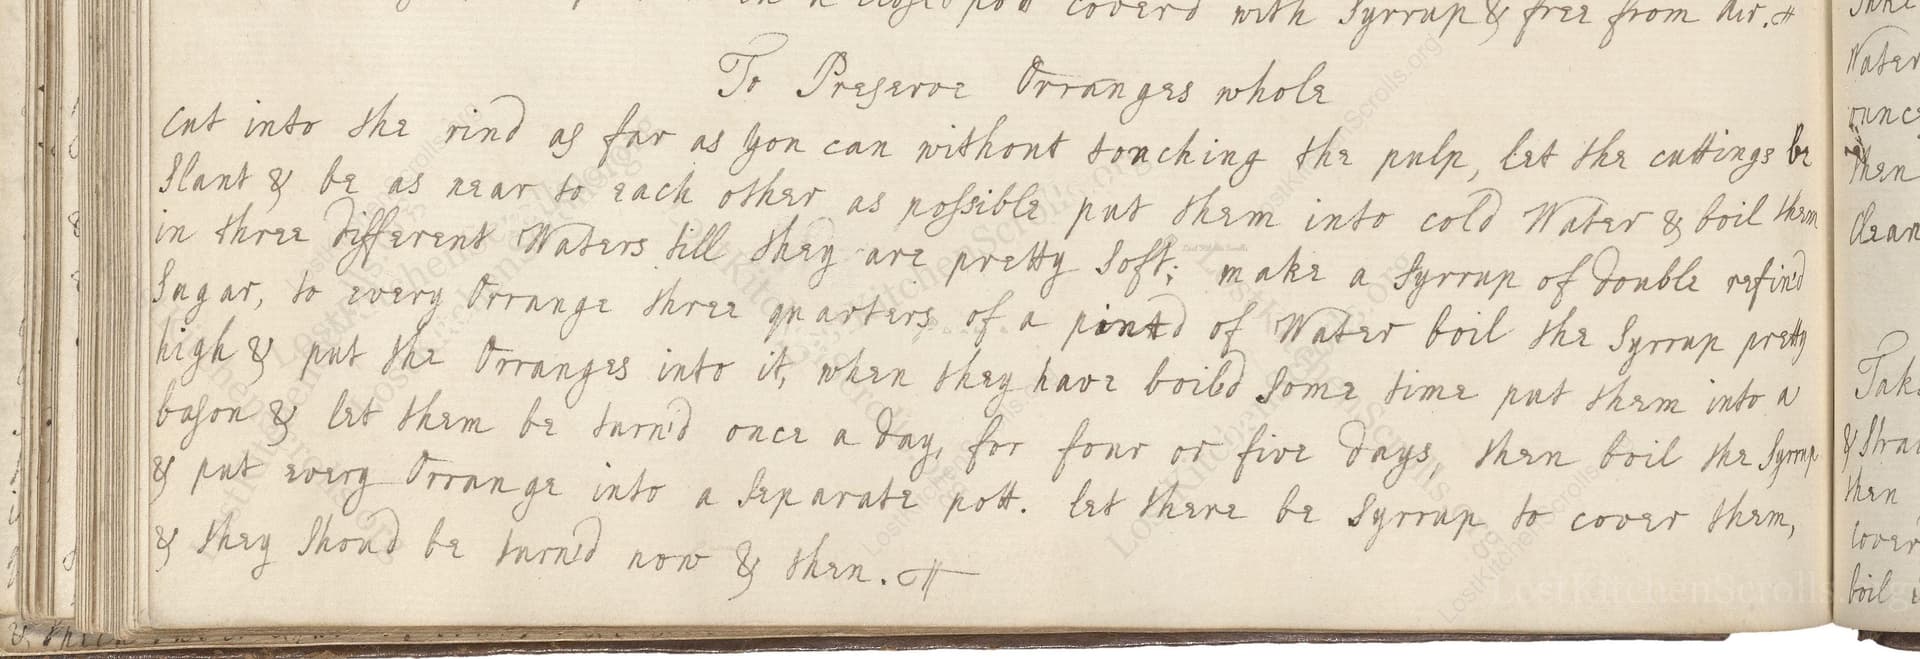 in a closed pott coverd with Syrrup & free from Air.
To Preserve Orranges whole
cut into the rind as far as you can without touching the pulp, let the cuttings be
Slant & be as near to each other as possible put them into cold Water & boil them
in three different Waters till they are pretty Soft; make a Syrrup of double refin'd
Sugar, to every Orrange three quarters of a of Water boil the Syrrup pretty
high & put the Orranges into it, when they have boild Some time put them into a
bason & let them be turn'd once a day, for four or five days, then boil the Syrrup
& put every Orrange into a Separate pott. let there be Syrrup to cover them,
& they Shoud be turn'd now & then.
Water
ounce
then
clean
Take
& Strai
then
cover
boil
LostKitchenScrolls.org